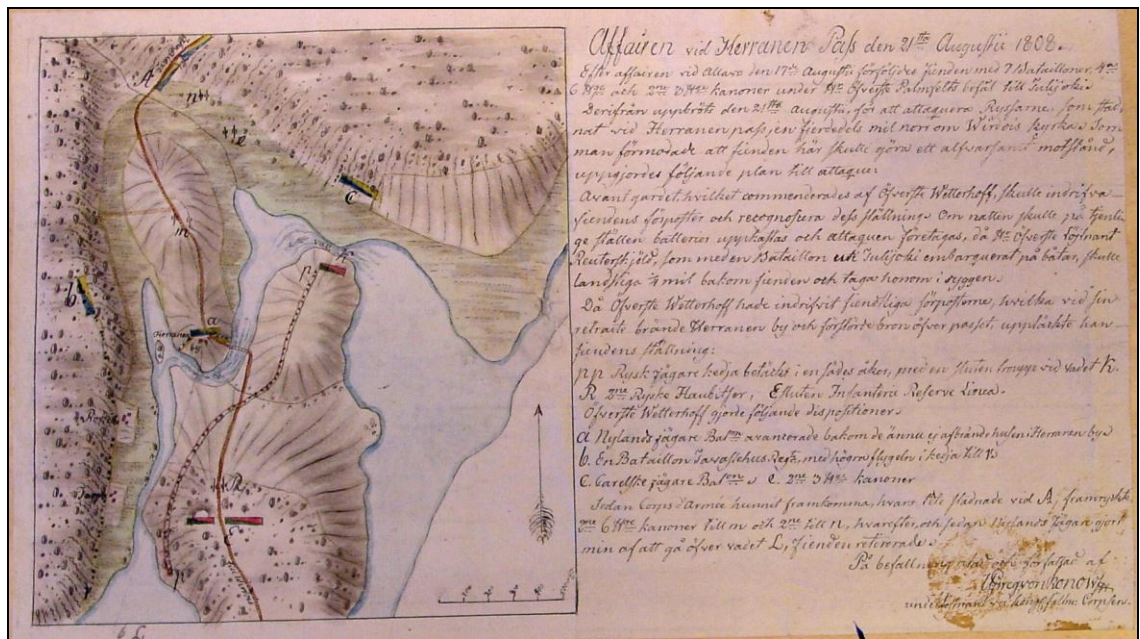 Affairen vid Herranen Pass den 21ste Augustii 1808.
Efter affairen vid Alavo den 17de Augusti förföljdes fienden med 7 Batailloner, 4ne
6 och 2ne 3 kanoner under Hr Öfverste Palmfelts befäl till Tulijoki
Derifrån uppbröts den 21ste Augustii, för att attaquera Ryssarne, som stad-
nat vid Herranen pass, en fjerdedels mil norr om Wirdois kyrka. Som
man förmodade att fienden här skulle göra ett alfvarsamt motstånd,
uppgjordes följande plan till attaque:
Avantgardet, hvilket commenderades af Öfverste Wetterhoff, skulle indrifva
fiendens förposter och recognosera dess ställning. Om natten skulle på tjenli-
ge ställen batterier uppkastas och attaquen företagas, då Hr Öfverste Löjtnant
Reuterskjöld, som med en Bataillon vid Tulijoki embarquerat på båtar, skulle
landstiga 1/4 mil bakom fienden och taga honom i ryggen.
Då Öfverste Wetterhoff hade indrifvit fiendtliga förposterna, hvilka vid sin
retraite brände Herranen by och förstörde bron öfver passet, upptäckte han
fiendens ställning:
pp Rysk Jägare kedja betäckt i en sädes åker, med en vid vadet k.
R 2ne Ryske Haubitser, Infanterie Reserve Linea.
Öfverste Wetterhoff gjorde följande dispositioner.
a Nylands Jägare Baton avancerade bakom de ännu ej afbrände husen i Herranen by
b. En Bataillon Tavastehus Regte, med högra flygeln i kedja till
C. Carelske Jägare Baton e. 2ne 3 kanoner
Sedan Corps d'Armée hunnit framkomma, hvars tête stadnade vid A, framryckte
2ne 6 kanoner till m och 2ne till n, hvarefter, och sedan Nylands Jägare gjort
min af att gå öfver vadet L, fienden retirerade.
På befallning och författad af
von Konow
A
n
e
c
m
b
a
Herranen
by
k
p
R
p